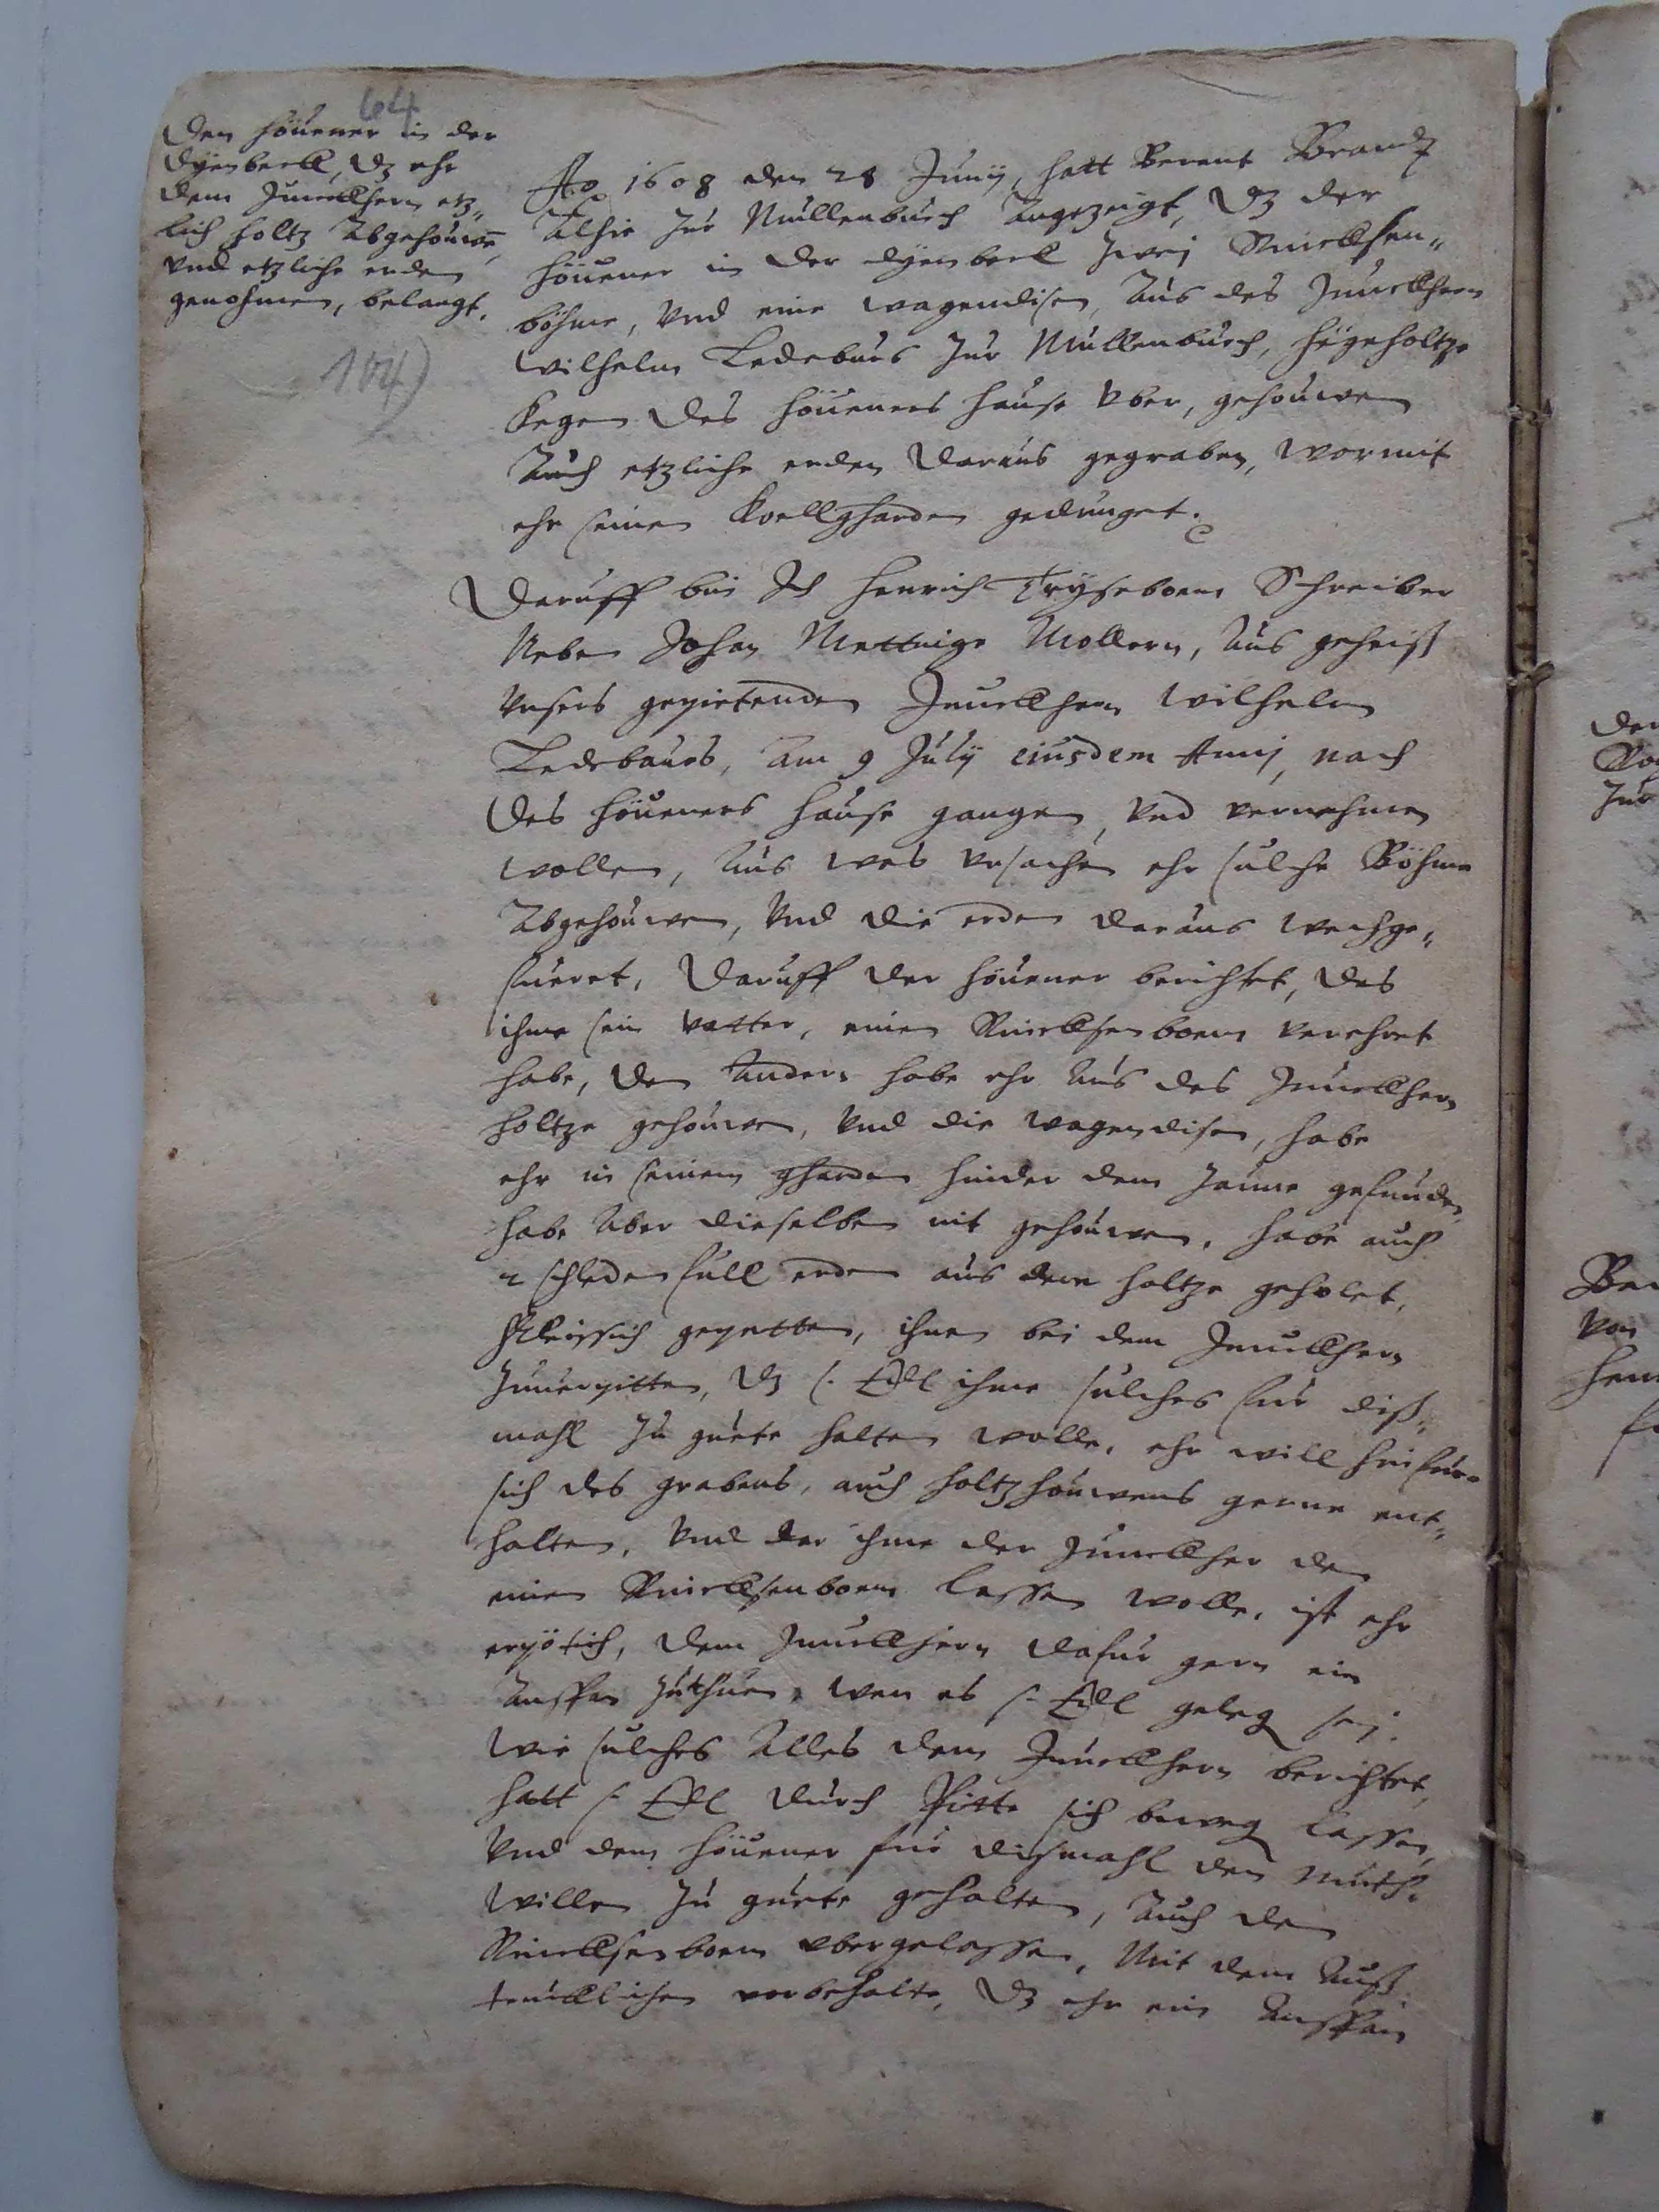 64
Den Höuener in der
Dÿenbeck, dz ehr
dem Junckhern etz„
lich holtz Abgehouwē,
vnd etzliche erden
genohmen, belangt.
104)
Ao 1608 den 28 Junij, hatt Berent Brandt
Alhie zur Mullenburch Angezeigt, dz der
Höuener in der dÿenbeck zwej
böhme, vnd eine wagendisen, Aus des Junckhern
Wilhelm Ledeburs zur Mullenburch, hegeholtze
kegen des Höueners hause vber, gehouwen
Auch etzliche erden daraus gegraben, wormit
ehr seinen koellgharden gedunget.
Daruff bin Ich Henrich Schreiber
Neben Johan Mollern, Aus geheiß
vnsers gepietenden Junckhern Wilhelm
Ledebaurs, Am 9 Julij eiusdem Annj, nach
des Höueners hause gangen, vnd vernehmen
wollen, Aus was vrsachen ehr sulche Böhme
Abgehouwen, vnd die erden daraus wechge„
fueret, Daruff der Höuener berichtet, das
ihme sein vatter, einen verehret
habe, den Andern habe ehr Aus des Junckhern
holtze gehouwen, vnd die wagendisen, habe
ehr in seinem gharden hinder dem zaune gefunden,
habe Aber dieselben nit gehouwen, habe auch
2 schleden full erden aus dem holtze geholet,
fleissich gepetten, ihnen bei dem Junckhern
zuuerpitten, dz s. Edl ihme sulches fur diß„
mahl zu guete halten wolle, ehr will hinfuro
sich des grabens, auch holtzhouwens gerne ent„
halten, vnd dar ihme der Junckher den
einen lassen wolle, ist ehr
erpötich, dem Junckhern dafur gern ein
Anspan zuthuen, wen es s. Edl geleg sej.
Wie sulches Alles dem Junckhern berichtet,
hatt s. Edl durch Pitte sich beweg lassen,
vnd dem Höuener fur dißmahl den Muth„
willen zu guete gehalten, Auch den
vbergelassen, Mit dem Auß
trucklichen vorbehalte, dz ehr ein Anspan